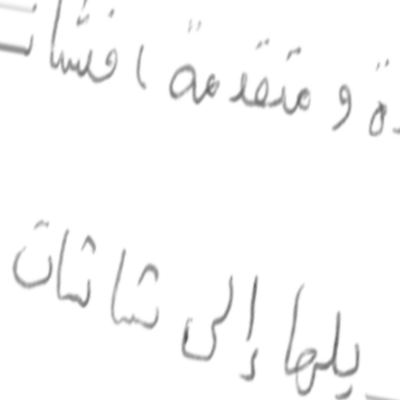 ة و متقدمة ا فتشات
يلها إلى شاشات